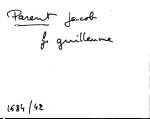 Parent Jacob
fs guillaume
1684/42